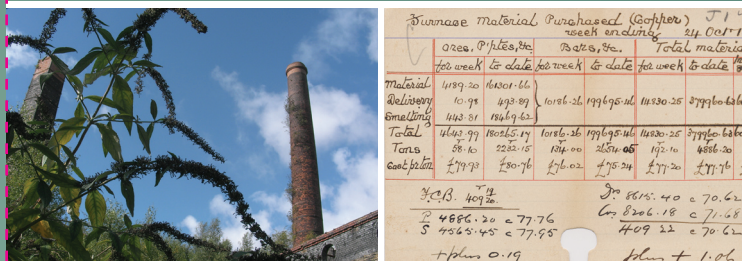 Furnace Material Purchased (Copper) J1
week ending 24 Oct
ores, P'ptes, &c. Bars, &c. Total materia
for week to date for week to date for week to date
Material 4189.20 161301.66
Delivery 10.98 493.89 10186.26 199695.46 14830.25 379960.63
Smelting 443.81 18469.62
Total 4643.99 180265.17 10186.26 199695.46 14830.25 379960.63
Tons 58.10 2232.15 134.00 2654.05 192.10 4886.20
Cost p ton £79.93 £80.76 £76.02 £75.24 £77.20 £77.76
F.C.B. 409
P 4886.20 c 77.76
S 4565.45 c 77.95
+plus 0.19
Dr. 8615.40 c 70.62
Cr. 8206.18 c 71.68
409 22 c 70.62
plus + 1.06